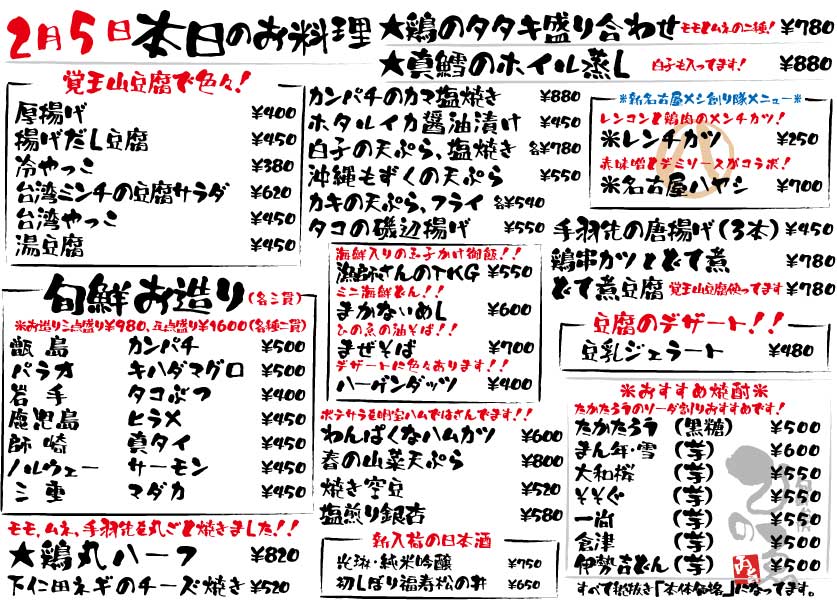 2月5日 本日のお料理
★鶏のタタキ盛り合わせ モモとムネの二種! ¥780
★真鱈のホイル蒸し 白子も入ってます! ¥880
覚王山豆腐で色々!
厚揚げ ¥400
揚げだし豆腐 ¥450
冷やっこ ¥380
台湾ミンチの豆腐サラダ ¥620
台湾やっこ ¥450
湯豆腐 ¥450
カンパチのカマ塩焼き ¥880
ホタルイカ醤油漬け ¥450
白子の天ぷら、塩焼き 各¥780
沖縄もずくの天ぷら ¥550
カキの天ぷら、フライ 各¥540
タコの磯辺揚げ ¥550
※新名古屋メシ創り隊メニュー※
レンコンと鶏肉のメンチカツ!
米レンチカツ ¥250
赤味噌とデミソースがコラボ!
米名古屋ハヤシ ¥700
手羽先の唐揚げ(3本) ¥450
鶏串カツとどて煮 ¥780
どて煮豆腐 覚王山豆腐使ってます ¥780
豆腐のデザート!!
豆乳ジェラート ¥480
旬鮮お造り(各三貫)
※お造り三点盛り¥980、五点盛り¥1600(各種二貫)
甑島 カンパチ ¥500
パラオ キハダマグロ ¥500
岩手 タコぶつ ¥400
鹿児島 ヒラメ ¥450
師崎 真タイ ¥450
ノルウェー サーモン ¥450
三重 マダカ ¥450
海鮮入りの玉子かけ御飯!!
漁師さんのTKG ¥550
ミニ海鮮どん!!
まかないめし ¥600
ひの魚の油そば!!
まぜそば ¥700
デザートに色々あります!!
ハーゲンダッツ ¥400
ポテサラを明宝ハムではさんでます!!
わんぱくなハムカツ ¥600
春の山菜天ぷら ¥800
焼き空豆 ¥520
塩煎り銀杏 ¥580
新入荷の日本酒
純米吟醸 ¥750
初しぼり福寿松の井 ¥650
モモ、ムネ、手羽先を丸ごと焼きました!!
★鶏丸ハーフ ¥820
下仁田ネギのチーズ焼き ¥520
※おすすめ焼酎※
たかたろうのソーダ割りおすすめです!
たかたろう (黒糖) ¥500
まん年・雪 (芋) ¥600
大和桜 (芋) ¥550
そそぐ (芋) ¥550
一尚 (芋) ¥550
倉津 (芋) ¥550
伊勢吉どん (芋) ¥550
すべて税抜き「本体価格」になってます。